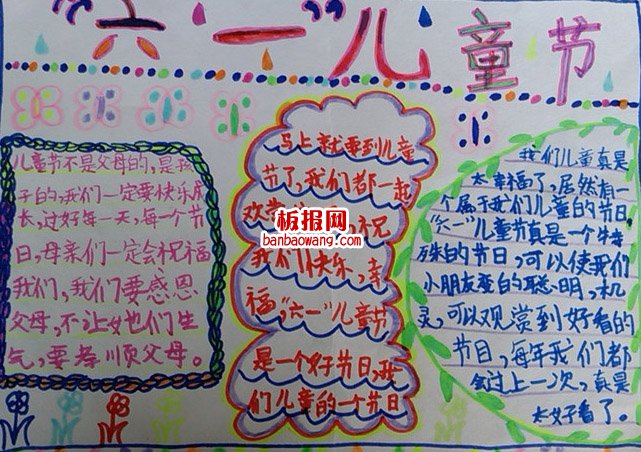 “六一”儿童节
儿童节不是父母的,是孩
子的,我们一定要快乐成
长,过好每一天,每一个节
日,母亲们一定会祝福
我们,我们要感恩
父母,不让她们生
气,要孝顺父母。
马上就要到儿童
节了,我们都一起
欢 祝
我们快乐,幸
福,“六一”儿童节
是一个好节日,我
们儿童的一个节日
板报网
banbaowang.com
我们儿童真是
太幸福了,居然有一
个属于我们儿童的节日
“六一”儿童节真是一个特
殊的节日,可以使我们
小朋友变的聪明,机
灵,可以观赏到好看的
节目,每年我们都
会过上一次,真是
太好看了。